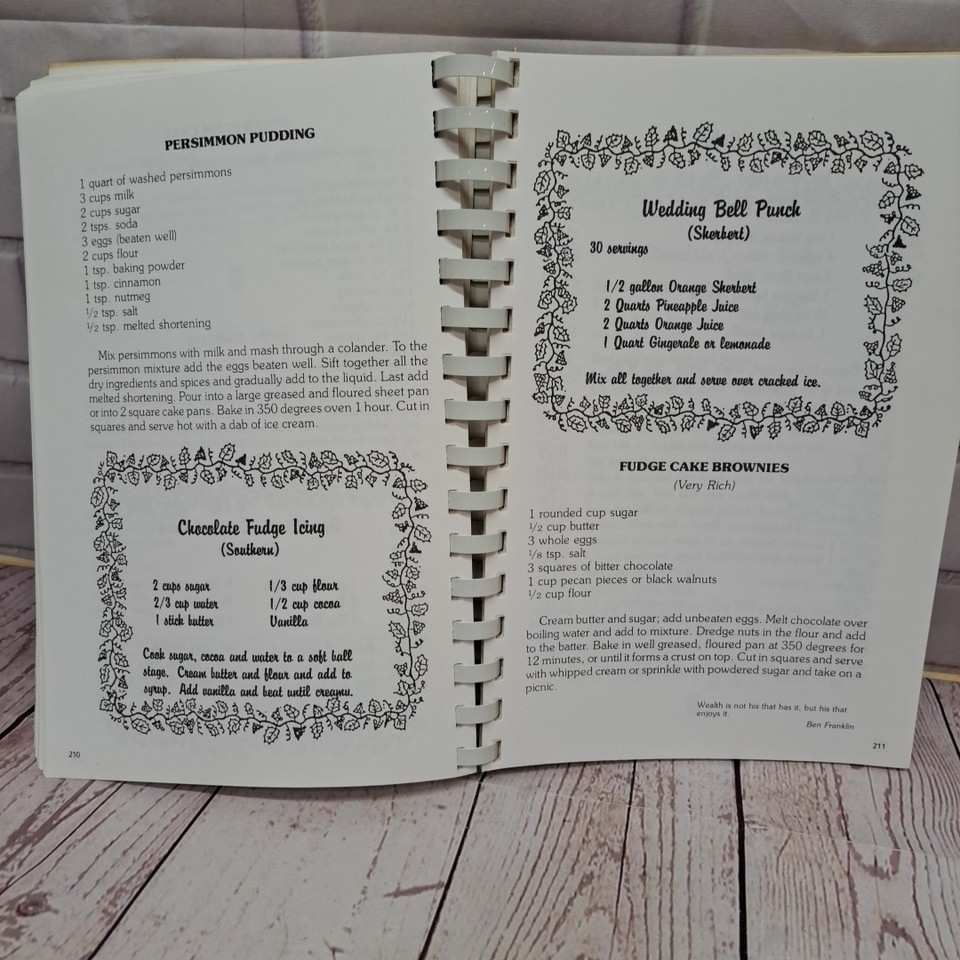 PERSIMMON PUDDING
1 quart of washed persimmons
3 cups milk
2 cups sugar
2 tsps. soda
3 eggs (beaten well)
2 cups flour
1 tsp. baking powder
1 tsp. cinnamon
1 tsp. nutmeg
½ tsp. salt
½ tsp. melted shortening
Mix persimmons with milk and mash through a colander. To the
persimmon mixture add the eggs beaten well. Sift together all the
dry ingredients and spices and gradually add to the liquid. Last add
melted shortening. Pour into a large greased and floured sheet pan
or into 2 square cake pans. Bake in 350 degrees oven 1 hour. Cut in
squares and serve hot with a dab of ice cream.
Chocolate Fudge Icing
(Southern)
2 cups sugar 1/3 cup flour
2/3 cup water 1/2 cup cocoa
1 stick butter Vanilla
Cook sugar, cocoa and water to a soft ball
stage. Cream butter and flour and add to
syrup. Add vanilla and beat until creamy.
210
Wedding Bell Punch
(Sherbert)
30 servings
1/2 gallon Orange Sherbert
2 Quarts Pineapple Juice
2 Quarts Orange Juice
1 Quart Gingerale or lemonade
Mix all together and serve over cracked ice.
FUDGE CAKE BROWNIES
(Very Rich)
1 rounded cup sugar
½ cup butter
3 whole eggs
⅛ tsp. salt
3 squares of bitter chocolate
1 cup pecan pieces or black walnuts
½ cup flour
Cream butter and sugar; add unbeaten eggs. Melt chocolate over
boiling water and add to mixture. Dredge nuts in the flour and add
to the batter. Bake in well greased, floured pan at 350 degrees for
12 minutes, or until it forms a crust on top. Cut in squares and serve
with whipped cream or sprinkle with powdered sugar and take on a
picnic.
Wealth is not his that has it, but his that
enjoys it.
Ben Franklin
211